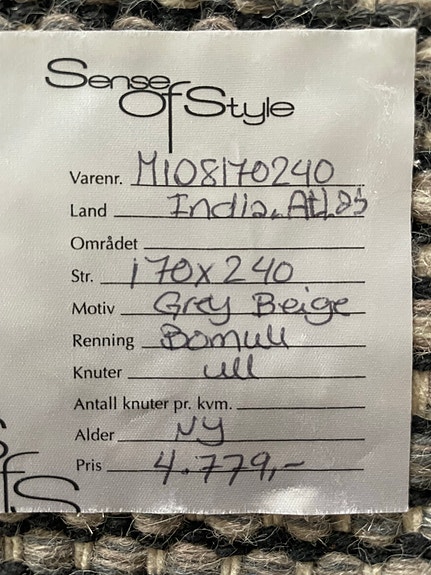 Sense
Of Style
Varenr. M108170240
Land India, Atlas
Området
Str. 170x240
Motiv Grey Beige
Renning Bomull
Knuter ull
Antall knuter pr. kvm.
Alder Ny
Pris 4.779,-